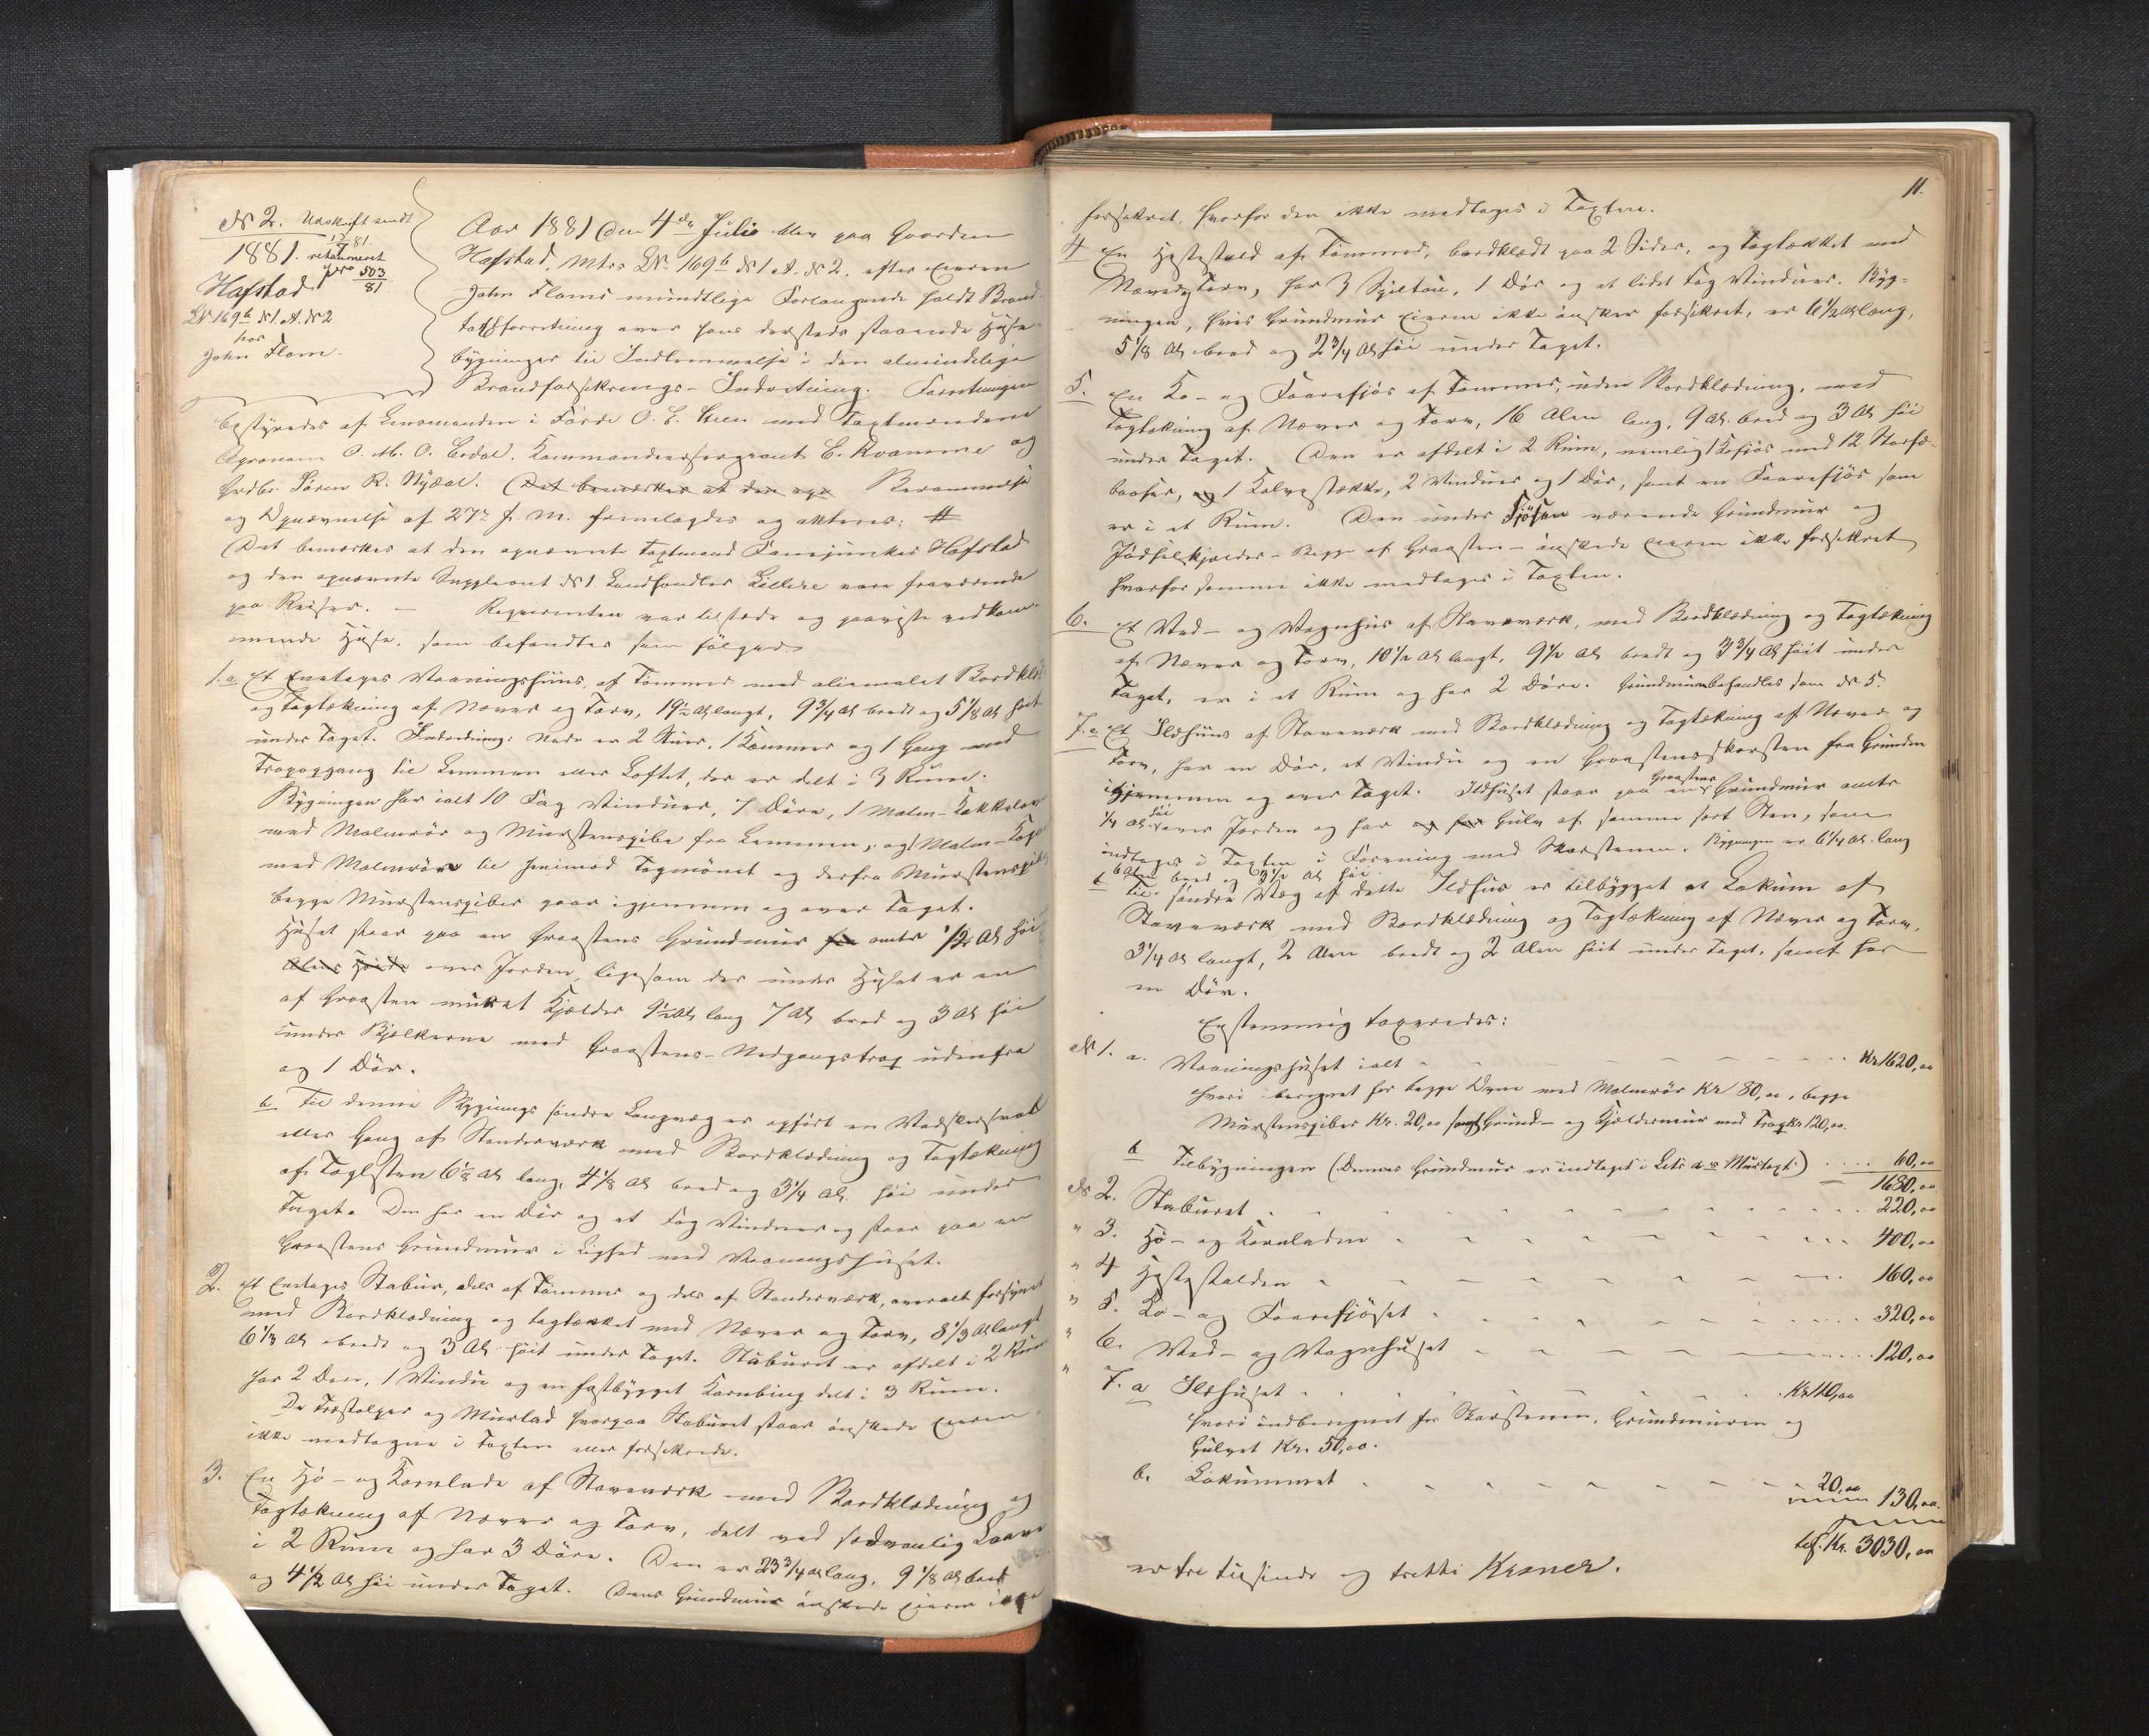 № 2. Udskrift sendt
13/7 81.
1881. retourneret
pro 503/81
Hafstad
L№ 169b № 1 A. № 2
hos
John Flom.
Aar 1881 den 4de Julie blev paa Gaarden
Hafstad, Mtr. L№ 169b № 1 A. № 2, efter Eieren
John Floms mundtlige Forlangende holdt Brand-
taxtforretning over hans dersteds staaende Huse-
bygninger til Indlemmelse i den almindelige
Brandforsikrings-Indretning. Forretningen
bestyredes af Lensmanden i Förde O. E. med Taxtmændene
Agronom O. M. O. Erdal, Kommandeersergeant E. Kvamme og
Grdbr. Sören R. Nydal. (Det bemærkes at den opn Berammelse
og Opnævnelse af 27de f. M. fremlagdes og akteres: #
(Det bemærkes at den opnævnte Taxtmand Fanejunker Hafstad
og den opnævnte Suppleant № 1 Landhandler vare fraværende
paa Reiser. — Reqvirenten var tilstede og paaviste vedkom-
mende Huse, som befandtes som følger:
1. a Et Enetages Vaaningshuus, af Tømmer med oliemalet Bordklæd
og Tagtækning af Næver og Torv, 19½ Al. langt, 9¾ Al. bredt og 5⅛ Al. høit
under Taget. Indredning: Nede er 2 Stuer, 1 Kammer og 1 Gang med
Trapopgang til Lemmen eller Loftet, der er delt i 3 Rum.
Bygningen har ialt 10 Fag Vinduer, 7 Döre, 1 Malm-Kakkelov
med Malmrör og Murstenspibe fra Lemmen, og 1 Malm-Kog
med Malmröre til henimod Tagmønet og derfra Murstenspib
begge Murstenspiber gaar igjennem og over Taget.
Huset staar paa en Graastens Grundmur fra omtr. ½ Al. høi
Alens Høide over Jorden, ligesom der under Huset er en
af Graasten muret Kjælder 9½ Al. lang 7 Al. bred og 3 Al. høi
under Bjælkerne med Graastens-Nedgangstrap udenfra
og 1 Dör.
b Til denne Bygnings søndre Langvæg er opført en Vadskersval
eller Gang af Stenderværk med Bordklædning og Tagtækning
af Taglsten 6½ Al. lang, 4⅛ Al. bred og 3¼ Al. høi under
Taget. Den har en Dör og et Fag Vinduer og staar paa en
Graastens Grundmur i Lighed med Vaaningshuset.
2. Et Enetages Stabur, dels af Tømmer og dels af Stenderværk, overalt forsynet
med Bordklædning og tagtækket med Næver og Torv, 8⅓ Al. langt
6⅓ Al. bredt og 3 Al. høit under Taget. Staburet er afdelt i 2 Rum
har 2 Døre, 1 Vindu og en fastbygget Kornbing delt i 3 Rum.
De Træstolper og Murlad hvorpaa Staburet staar ønskede Eieren
ikke medtagne i Taxten eller forsikrede.
3. En Hø- og Kornlade af Staveværk med Bordklædning og
Tagtækning af Næver og Torv, delt ved sædvanlig Laave
i 2 Rum og har 3 Döre. Den er 23¾ Al. lang, 9⅛ Al. bred
og 4½ Al. høi under Taget. Dens Grundmur ønskede Eieren ikke
11.
forsikret, hvorfor den ikke medtages i Taxten.
4 En Hestestald af Tømmer, bordklædt paa 2 Sider, og tagtækket med
Næver og Torv, har 3 Spiltou, 1 Dör og et lidet Fag Vinduer. Byg-
ningen, hvis Grundmur Eieren ikke ønsker forsikret, er 6½ Al. lang,
5⅛ Al. bred og 2¾ Al. høi under Taget.
5. En Ko- og Faarefjös af Tømmer, uden Bordklædning, med
Tagtækning af Næver og Torv, 16 Alen lang, 9 Al. bred og 3 Al. høi
under Taget. Den er afdelt i 2 Rum, nemlig 1 Kofjös med 12 Storfæ-
baaser, og 1 Kalvestække, 2 Vinduer og 1 Dör, samt en Faarefjös som
er i et Rum. Den under Fjösen værende Grundmur og
Jødselkjælder – Begge af Graasten – ønskede Eieren ikke forsikret
hvorfor samme ikke medtages i Taxten.
6. Et Ved- og Vognhus af Staveværk, med Bordklædning og Tagtækning
af Næver og Torv, 10½ Al. langt, 9½ Al. bredt og 3¾ Al. høit under
Taget, er i et Rum og har 2 Döre. Grundmuren behandles som № 5.
7. a Et Ildhuus af Staveværk med Bordklædning og Tagtækning af Næver og
Torv, har en Dör, et Vindu og en Graastensskorsten fra Grunden
igjennem og over Taget. Ildhuset staar paa en Graastens Grundmur omtr.
¼ Al. høi over Jorden og har og har Gulv af samme sort Sten, som
indtages i Taxten i Forening med Skorstenen. Bygningen er 6¼ Al. lang
6 Alen bred og 3½ Al. høi.
b Til søndre Væg af dette Ildhus er tilbygget et Lokum af
Staveværk med Bordklædning og Tagtækning af Næver og Torv,
3¼ Al. langt, 2 Alen bredt og 2 Alen høit under Taget, samt har
en Dör.
Enstemmig taxeredes:
№ 1. a. Vaaningshuset ialt Kr. 1620,00
hvori beregnet for begge Ovne med Malmrör Kr 80,00, begge
Murstenspiber Kr. 20,00 samt Grund- og Kjeldermur med Trap Kr 120,00.
b Tilbygningen (Dennes Grundmur er indtaget i Litr. a's Murtaxt) 60,00
1680,00
№ 2. Staburet 220,00
" 3. Hø- og Kornladen 400,00
" 4 Hestestalden 160,00
" 5. Ko- og Faarefjöset 320,00
" 6. Ved- og Vognhuset 120,00
" 7. a Ildhuset Kr 110,00
hvori indberegnet for Skorstenen, Grundmuren og
Gulvet Kr. 50,00.
b. Lokummet 20,00
130,00
tils. Kr. 3030,00
er tre tusinde og tretti Kroner.